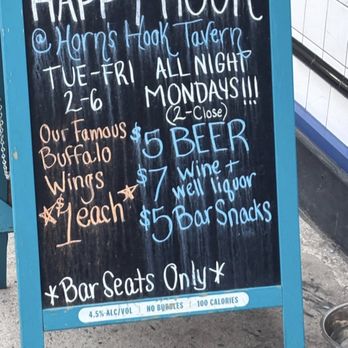 HAPPY HOUR
@ Horns Hook Tavern
TUE-FRI ALL NIGHT
2-6 MONDAYS!!!
(2-Close)
Our Famous
Buffalo
Wings
$1 each
$5 BEER
$7 Wine +
well liquor
$5 Bar Snacks
*Bar Seats Only*
4.5% ALC/VOL | NO BUBBLES | 100 CALORIES